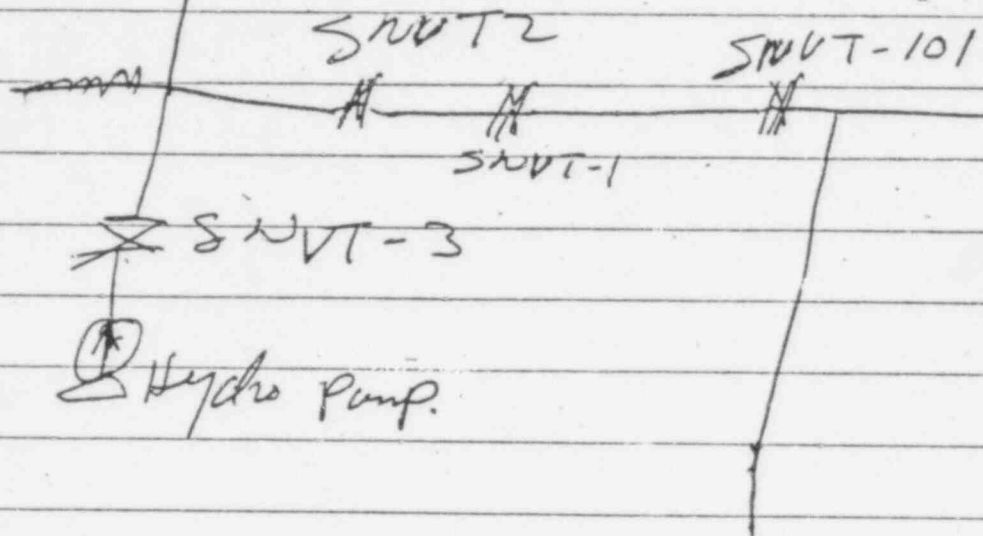 SNVT2
SNVT-101
SNVT-1
SNVT-3
Hydro Pump.